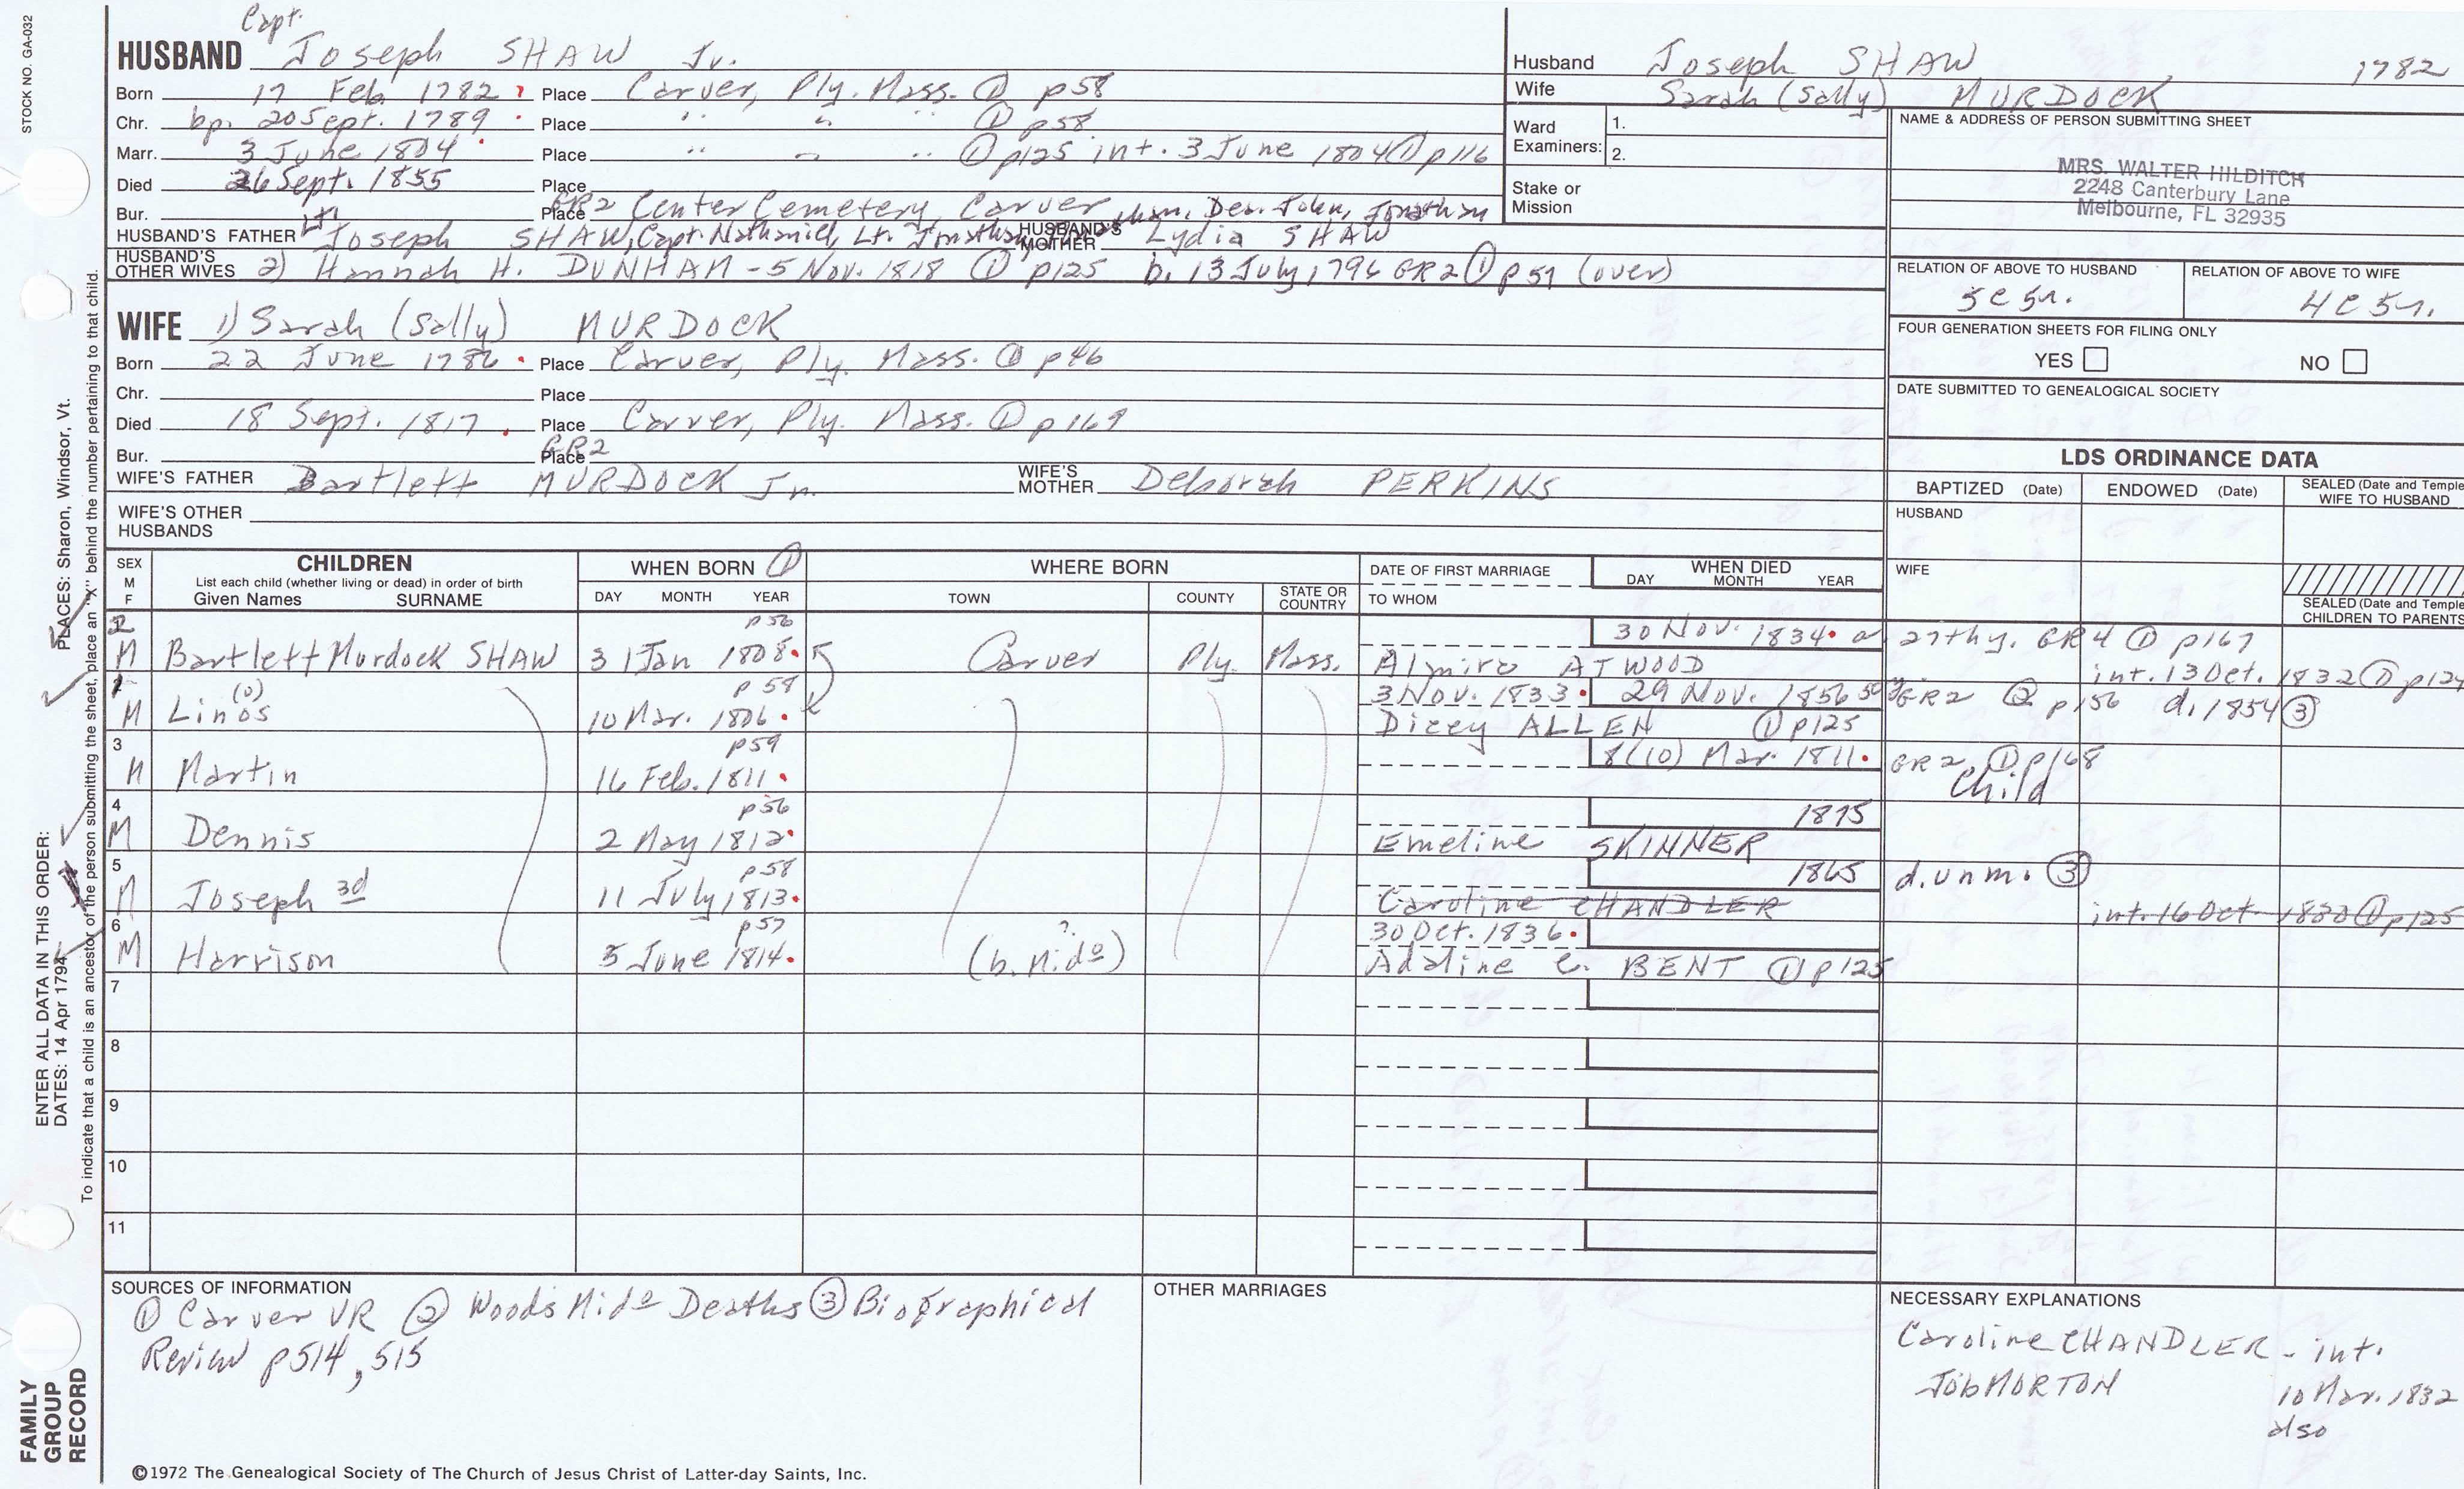 STOCK NO. GA-032
Capt.
HUSBAND Joseph SHAW Jr.
Born 17 Feb. 1782 Place Carver, Ply. Mass. ① p58
Chr. bp. 20 Sept. 1789 Place " " " ① p58
Marr. 3 June 1804 Place " " " ① p125 int. 3 June 1804 ① p116
Died 26 Sept. 1855 Place
Bur. Place GR2 Center Cemetery, Carver
HUSBAND'S FATHER Lt. Joseph SHAW, Capt. Nathaniel, Lt. Jonathan, Dea. John, Jonathan HUSBAND'S MOTHER Lydia SHAW
HUSBAND'S OTHER WIVES 2) Hannah H. DUNHAM - 5 Nov. 1818 ① p125 b. 13 July 1796 GR2 ① p57 (over)
WIFE 1) Sarah (Sally) MURDOCK
Born 22 June 1786 Place Carver, Ply. Mass. ① p46
Chr. Place
Died 18 Sept. 1817 Place Carver, Ply. Mass. ① p169
Bur. Place GR2
WIFE'S FATHER Bartlett MURDOCK Jr. WIFE'S MOTHER Deborah PERKINS
WIFE'S OTHER HUSBANDS
Husband Joseph SHAW 1782
Wife Sarah (Sally) MURDOCK
Ward Examiners: 1.
2.
Stake or Mission
NAME & ADDRESS OF PERSON SUBMITTING SHEET
MRS. WALTER HILDITCH
2248 Canterbury Lane
Melbourne, FL 32935
RELATION OF ABOVE TO HUSBAND RELATION OF ABOVE TO WIFE
5c5r. 4c5r.
FOUR GENERATION SHEETS FOR FILING ONLY
YES NO
DATE SUBMITTED TO GENEALOGICAL SOCIETY
LDS ORDINANCE DATA
BAPTIZED (Date) ENDOWED (Date) SEALED (Date and Temple) WIFE TO HUSBAND
HUSBAND
WIFE
SEALED (Date and Temple) CHILDREN TO PARENTS
SEX M F CHILDREN WHEN BORN ① WHERE BORN DATE OF FIRST MARRIAGE WHEN DIED
List each child (whether living or dead) in order of birth
Given Names SURNAME DAY MONTH YEAR TOWN COUNTY STATE OR COUNTRY TO WHOM DAY MONTH YEAR
2 p56 30 Nov. 1834 a. 27thy. GR4 ① p167
M Bartlett Murdock SHAW 31 Jan 1808 Carver Ply. Mass. Almira ATWOOD int. 13 Oct. 1832 ① p124
1 (o) p59 3 Nov. 1833 29 Nov. 1856 GR2 ② p156 d. 1854 ③
M Linos 10 Mar. 1806 Dicey ALLEN ① p125
3 p59 8(10) Mar. 1811 GR2 ① p168
M Martin 16 Feb. 1811 Child
4 p56 1895
M Dennis 2 May 1812 Emeline SKINNER
5 p58 1865 d. unm. ③
M Joseph 3d 11 July 1813 Caroline CHANDLER int. 16 Oct 1830 ① p125
6 p57 ? 30 Oct. 1836
M Harrison 5 June 1814 (b. Mido) Adaline C. BENT ① p125
7
8
9
10
11
SOURCES OF INFORMATION
① Carver VR ② Woods Mido Deaths ③ Biographical
Review p514, 515
OTHER MARRIAGES
NECESSARY EXPLANATIONS
Caroline CHANDLER - int.
Job MORTON 10 Mar. 1832
also
©1972 The Genealogical Society of The Church of Jesus Christ of Latter-day Saints, Inc.
FAMILY
GROUP
RECORD
ENTER ALL DATA IN THIS ORDER:
DATES: 14 Apr 1794 PLACES: Sharon, Windsor, Vt.
To indicate that a child is an ancestor of the person submitting the sheet, place an "X" behind the number pertaining to that child.